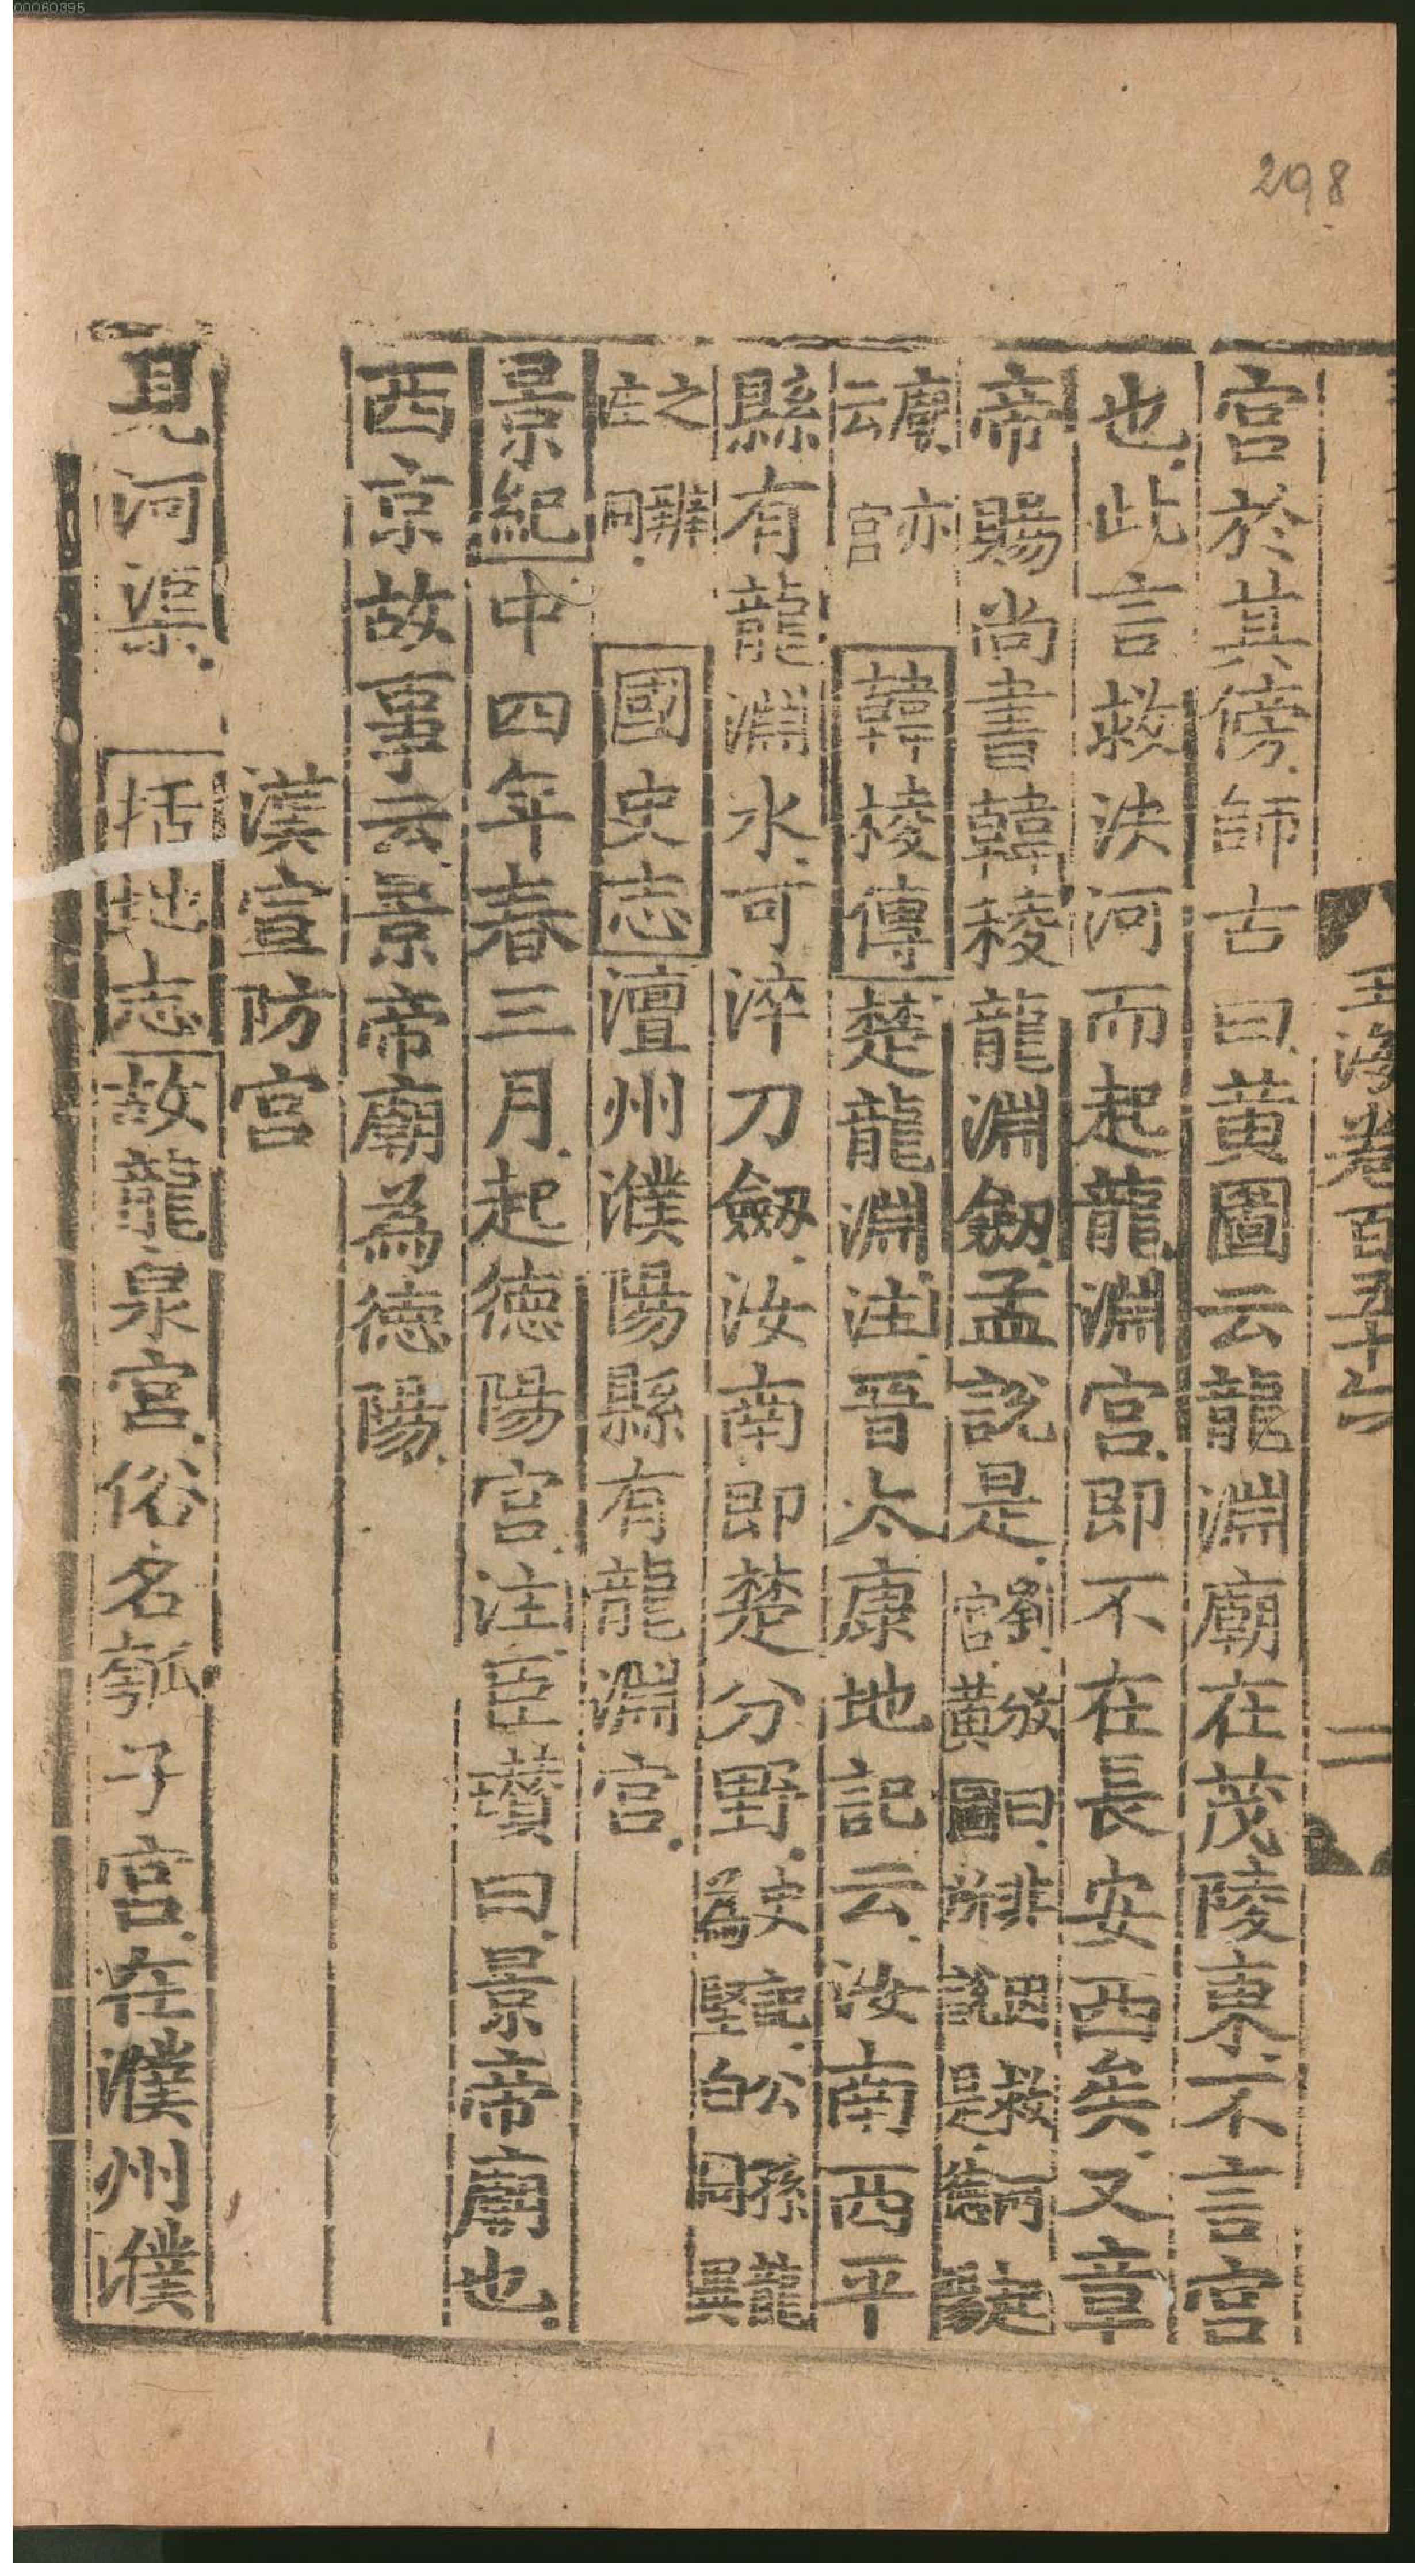 00060395
298
玉海卷百五十六
二
宮於其傍師古曰黄圖云龍淵廟在茂陵東不言宮
也此言救決河而起龍淵宮即不在長安西矣又章
帝賜尚書韓稜龍淵劔孟說是劉攽曰非因救河㝎宮黄圖所說是德陽
廟亦云宮韓稜傳楚龍淵注晋太康地記云汝南西平
縣有龍淵水可淬刀劔汝南即楚分野史記公孫龍為堅白同異
之辨在同國史志澶州濮陽縣有龍淵宮
景紀中四年春三月起德陽宮注臣瓚曰景帝廟也
西京故事云景帝廟為德陽
漢宣防宮
見河渠括地志故龍泉宮俗名瓠子宮在濮州濮